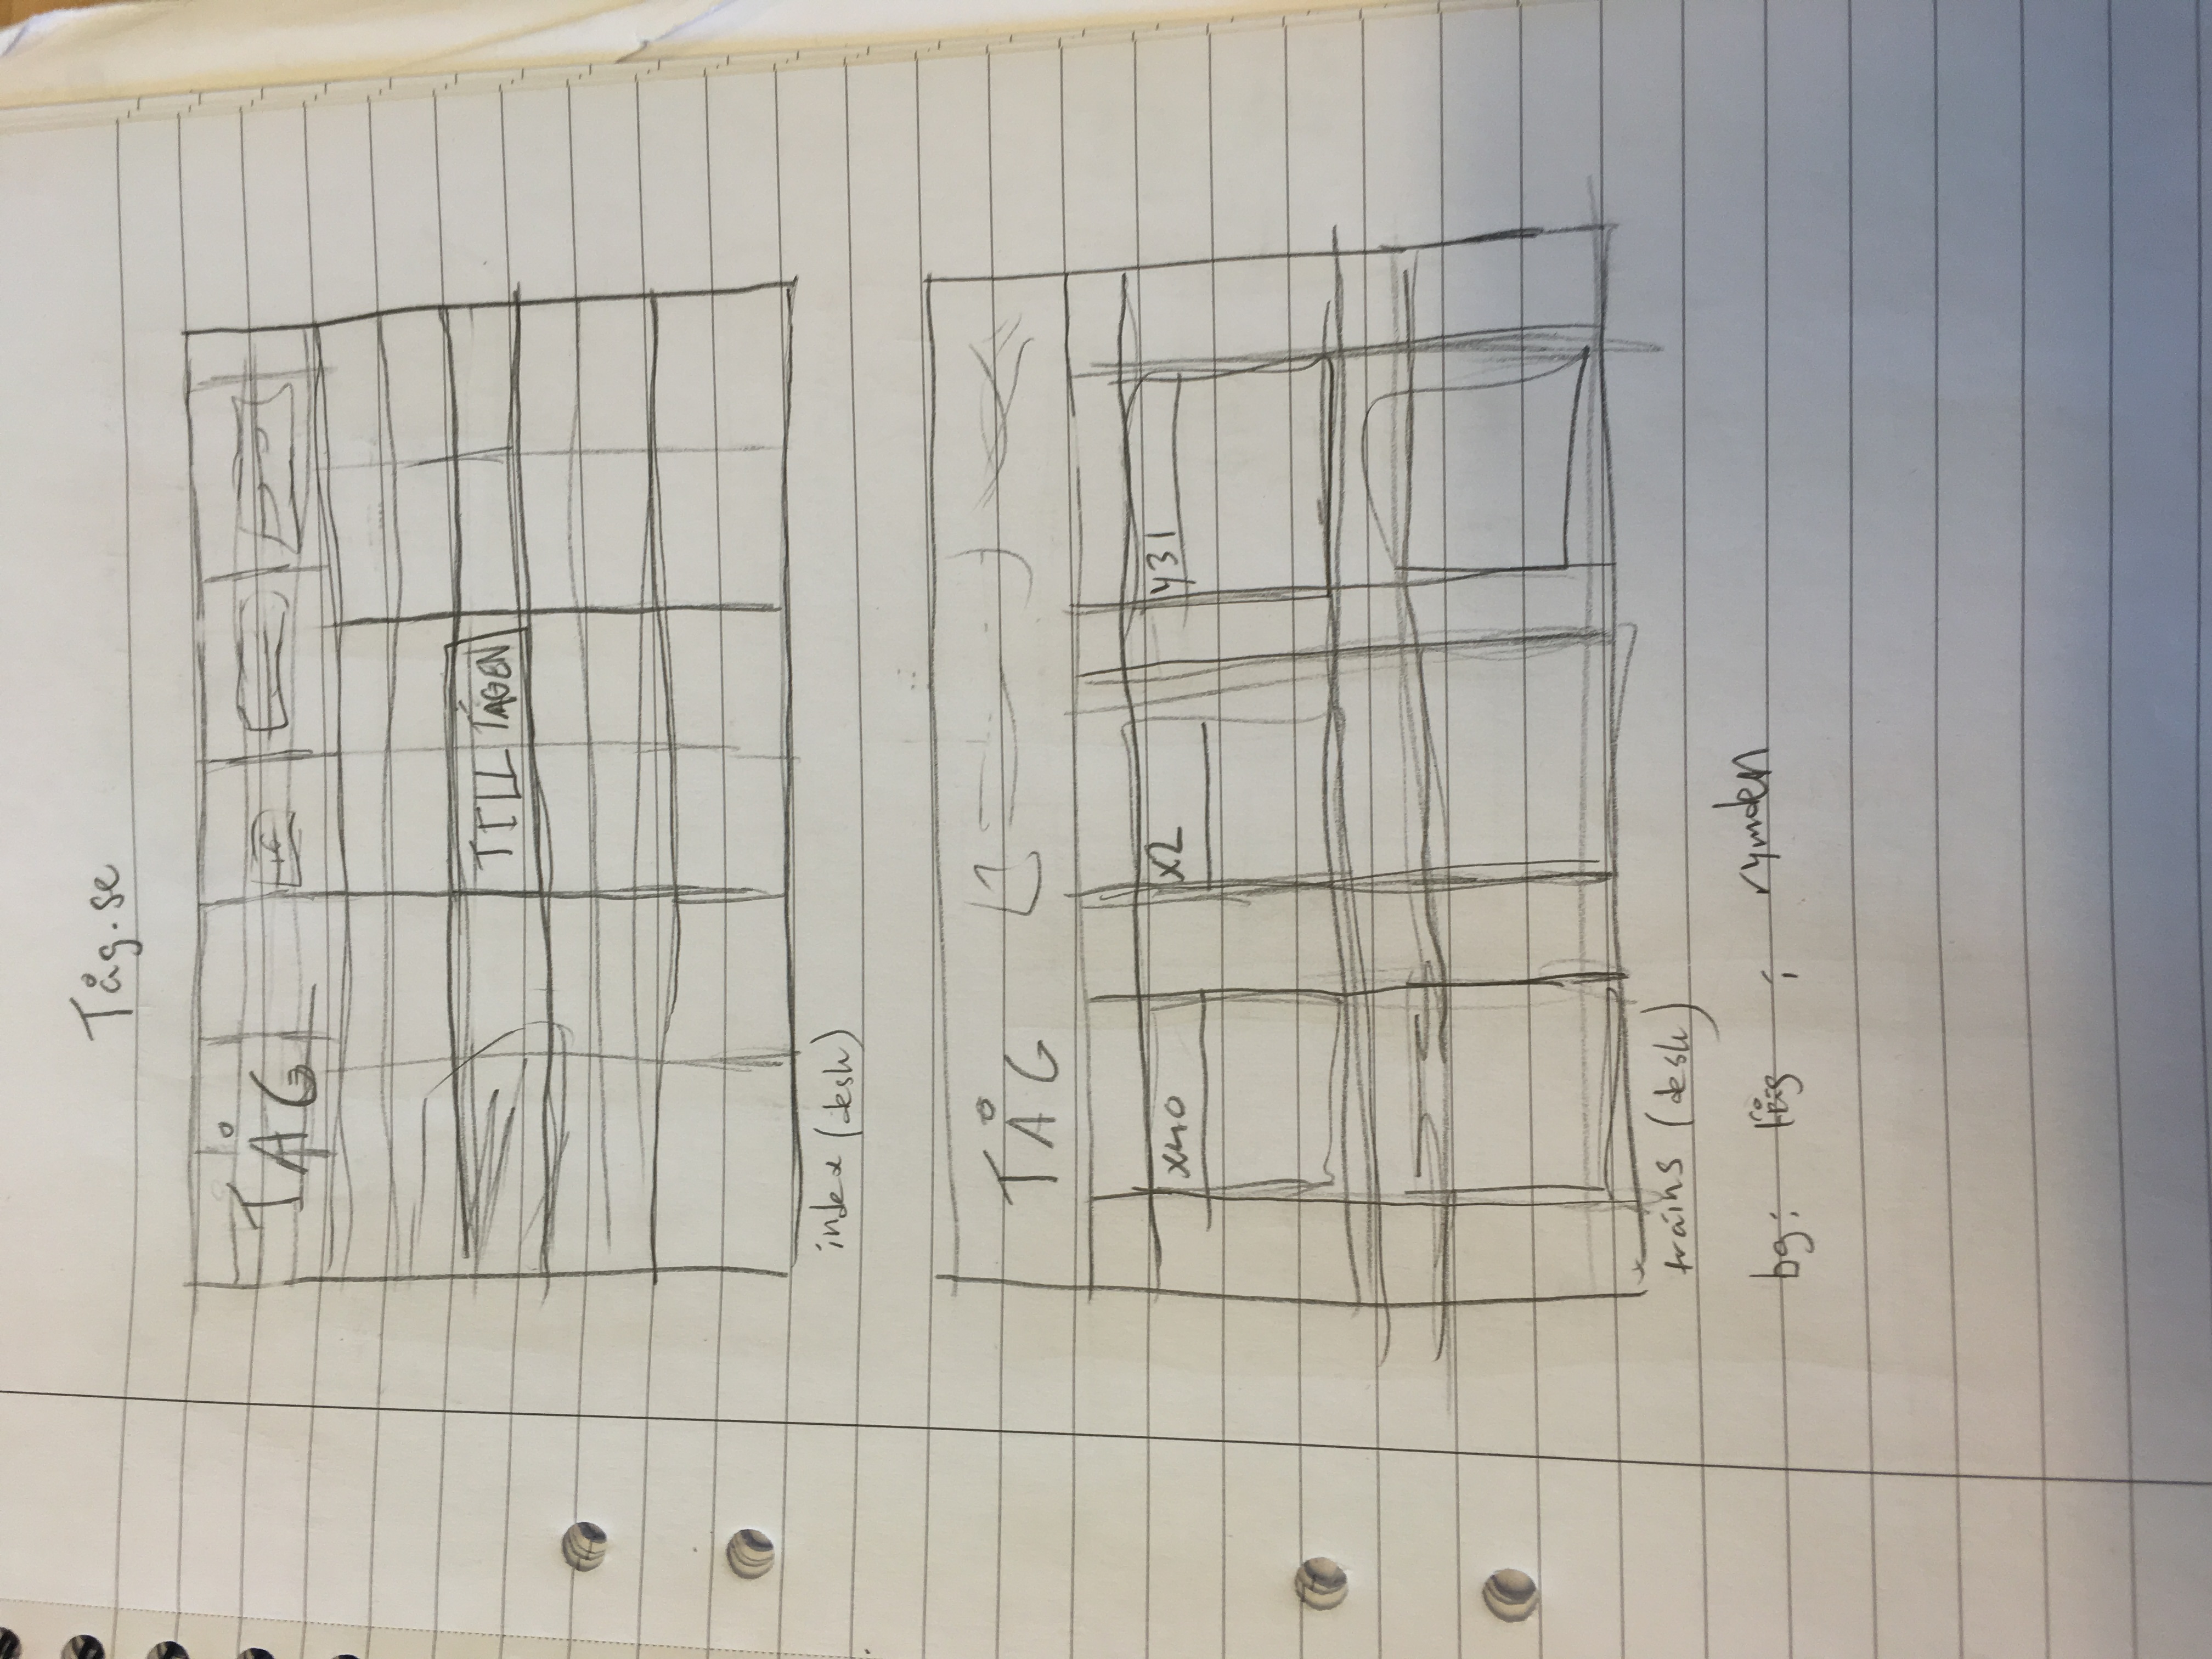 Tåg.se
TÅG
TILL TÅGEN
index (desk)
TÅG
X40 X2 Y31
trains (desk)
bg: tåg i rymden